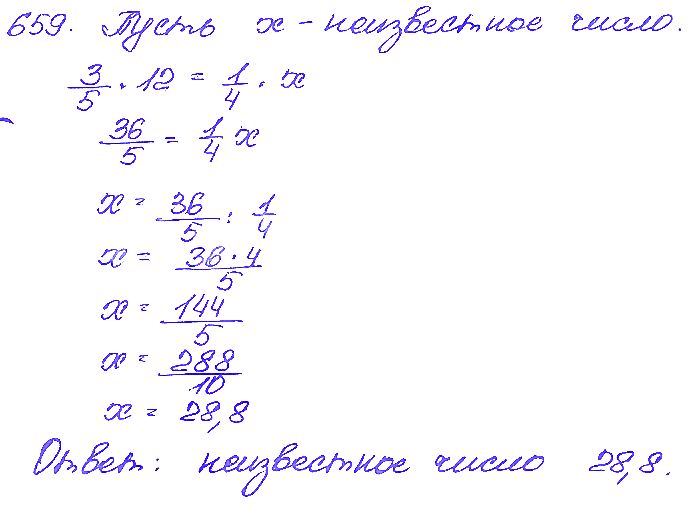 659. Пусть x - неизвестное число.
3/5 · 12 = 1/4 · x
36/5 = 1/4 x
x = 36/5 : 1/4
x = 36·4/5
x = 144/5
x = 288/10
x = 28,8
Ответ: неизвестное число 28,8.